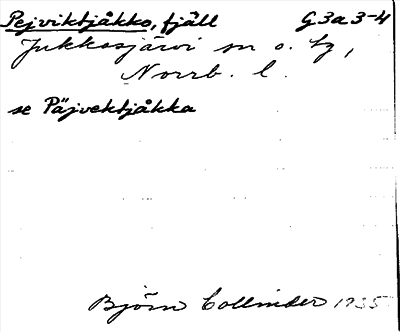 Pejviktjåkko, fjäll G 3a 3-4
Jukkasjärvi sn o. tg,
Norrb. l.
se Päjvektjåkka
Björn Collinder 1935